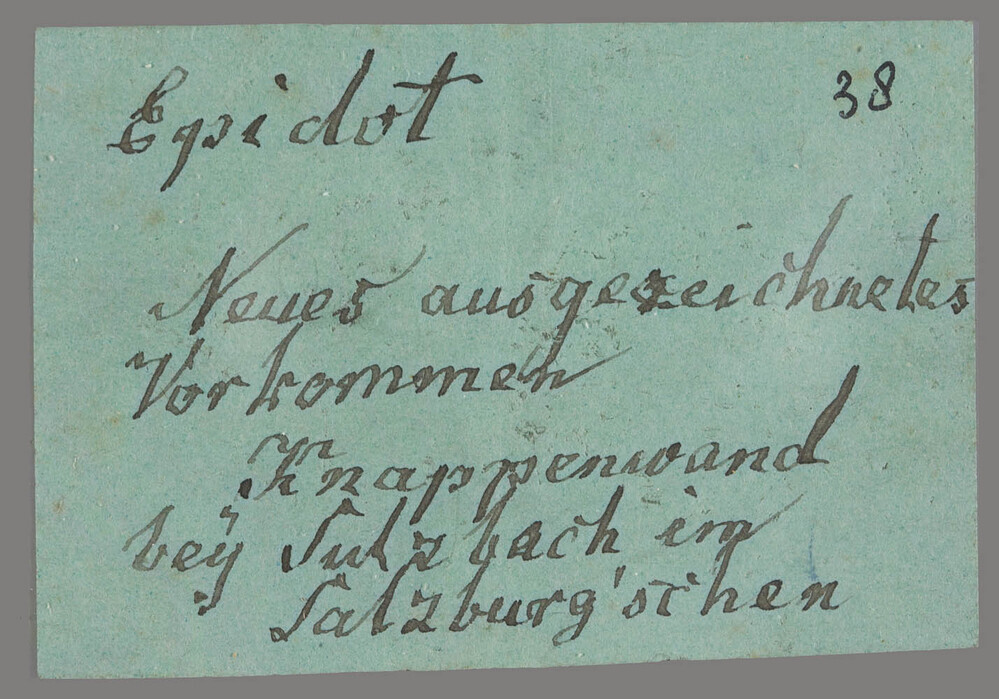 Epidot 38
Neues ausgezeichnetes
Vorkommen
Knappenwand
beÿ Sulzbach im
Salzburg'schen